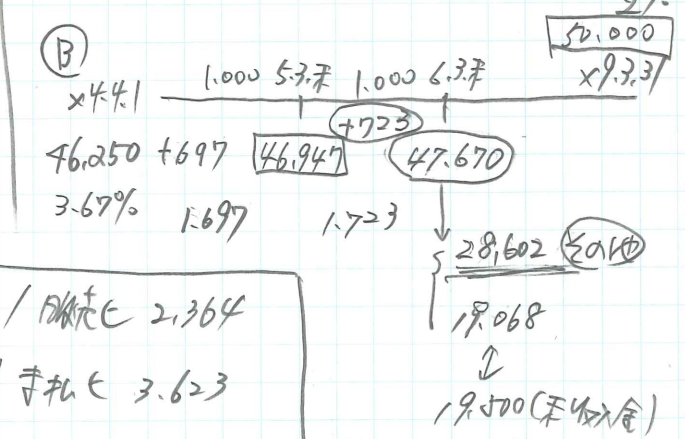 50.000
B
1.000 5.3.末 1.000 6.3.末
×4.4.1
×9.3.31
+723
46,250 +697 46,947 47.670
3.67%
1.697 1.723
28,602 その他
19.068
19.500(未収入金)
2,364
3.623